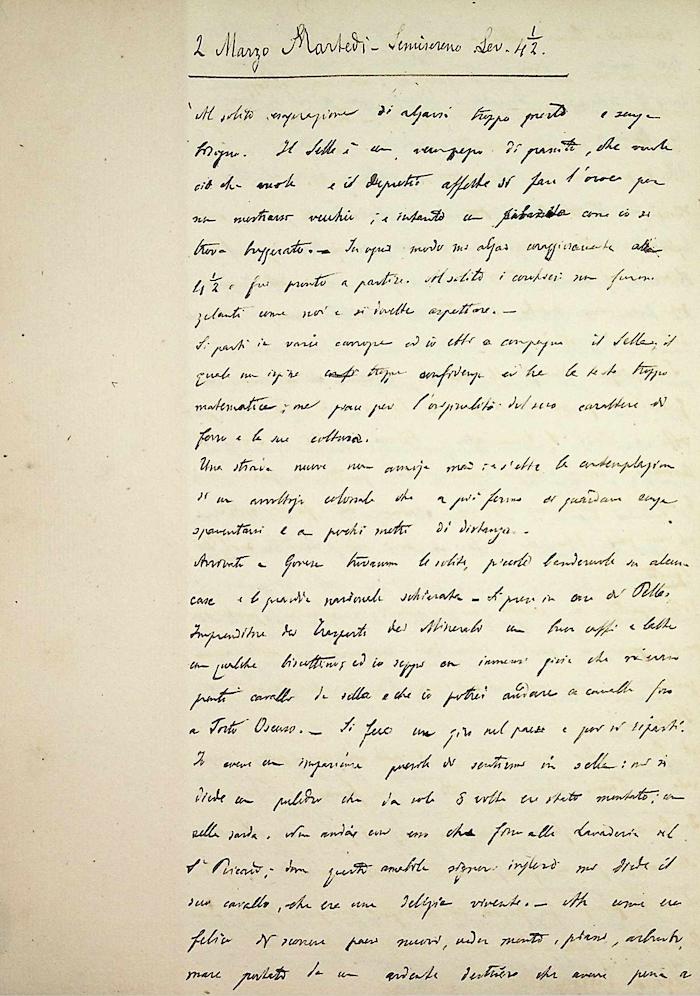 2 Marzo Martedì - Semisereno Lev. 4½.
Al solito esagerazione di alzarsi troppo presto e senza
bisogno. Il Sella è un di , che vuole
ciò che vuole e il Depretis affetta di fare l'
non mostrarsi vecchio; e intanto un come io si
trova buggerato. - In ogni modo mi alzai coraggiosamente alle
4½ e fui pronto a partire. Al solito i non furono
zelanti come noi e si dovette aspettare. -
Si partì in varie carrozze ed io ebbi a compagno il Sella, il
quale non ispira troppa confidenza ed ha la testa troppo
matematica; me piace per l'originalità del suo carattere di
ferro e la sua coltura.
Una strada nuova non annoja mai: la contemplazione
di un avoltojo colossale che a piè fermo ci guardava senza
spaventarsi e a pochi metri di distanza.
Arrivati a Gonesa trovammo le solite piccole banderuole su alcune
case e la guardia nazionale schierata - Si prese in casa di
Imprenditore dei Trasporti dei Minerali un buon caffè e latte
con qualche biscottino, ed io seppi con immensa gioia che v'erano
pronti cavalli da sella e che io potrei andare a cavallo fino
a Porto Oscuso. - Si fece un giro nel paese e poi si ripartì.
Io avevo un' impazienza di sentirmi in sella: mi si
diede un puledro che da sole 8 volte era stato montato, con
sella sarda. andai con esso che fino alle Laveria del
Sr ; dove questo amabile signore inglese mi diede il
suo cavallo, che era una delizia vivente. - Ah come ero
felice di scorrere paesi nuovi, veder monti, piani, arbusti,
mare portato da un ardente destriero che aveva pena a